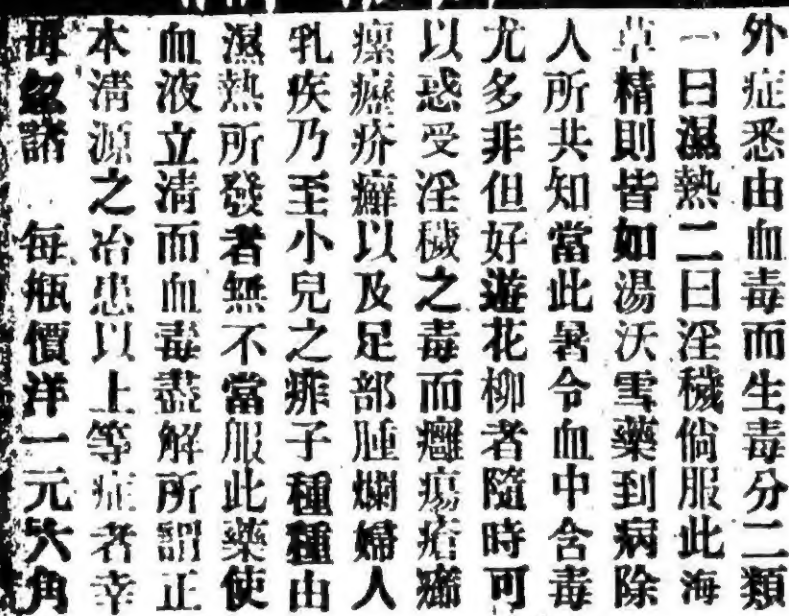 外症悉由血毒而生毒分二類
一曰濕熱二曰淫穢倘服此海
草精則皆如湯沃雪藥到病除
人所共知當此暑令血中含毒
尤多非但好遊花柳者隨時可
以惑受淫穢之毒而癰瘍瘡癤
瘰癧疥癬以及足部腫爛婦人
乳疾乃至小兒之痱子種種由
濕熱所發者無不當服此藥使
血液立清而血毒盡解所謂正
本清源之治患以上等症者幸
毋忽諸 每瓶價洋一元六角